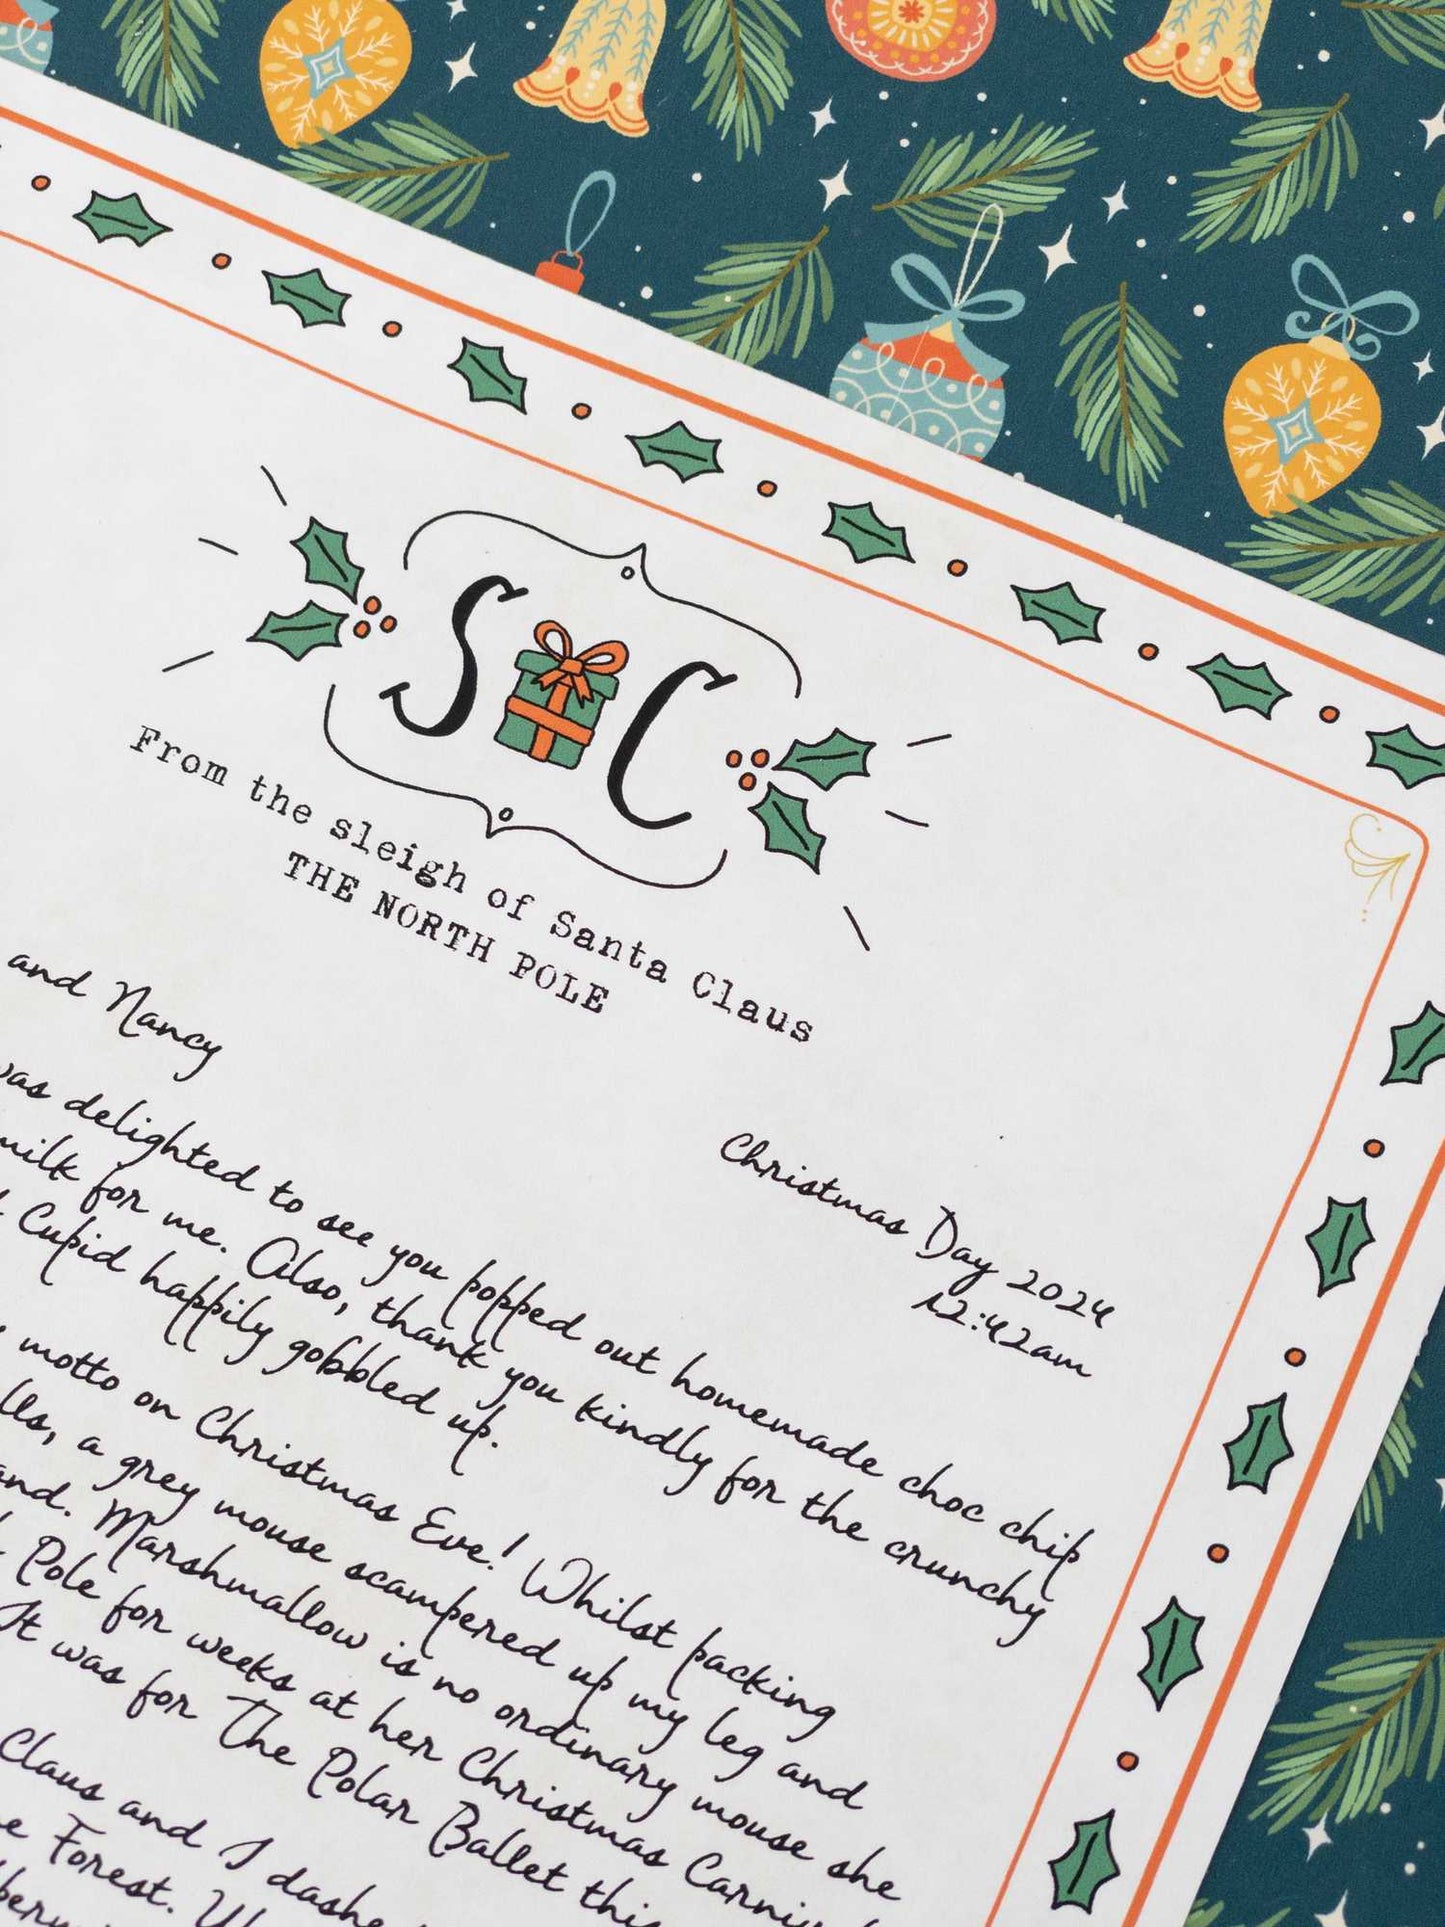 S C
From the sleigh of Santa Claus
THE NORTH POLE
and Nancy
Christmas Day 2024
12:42am
was delighted to see you popped out homemade choc chip
milk for me. Also, thank you kindly for the crunchy
Cupid happily gobbled up.
motto on Christmas Eve! Whilst packing
a grey mouse scampered up my leg and
Marshmallow is no ordinary mouse she
Pole for weeks at her Christmas
It was for The Polar Ballet
Claus and I
Forest.